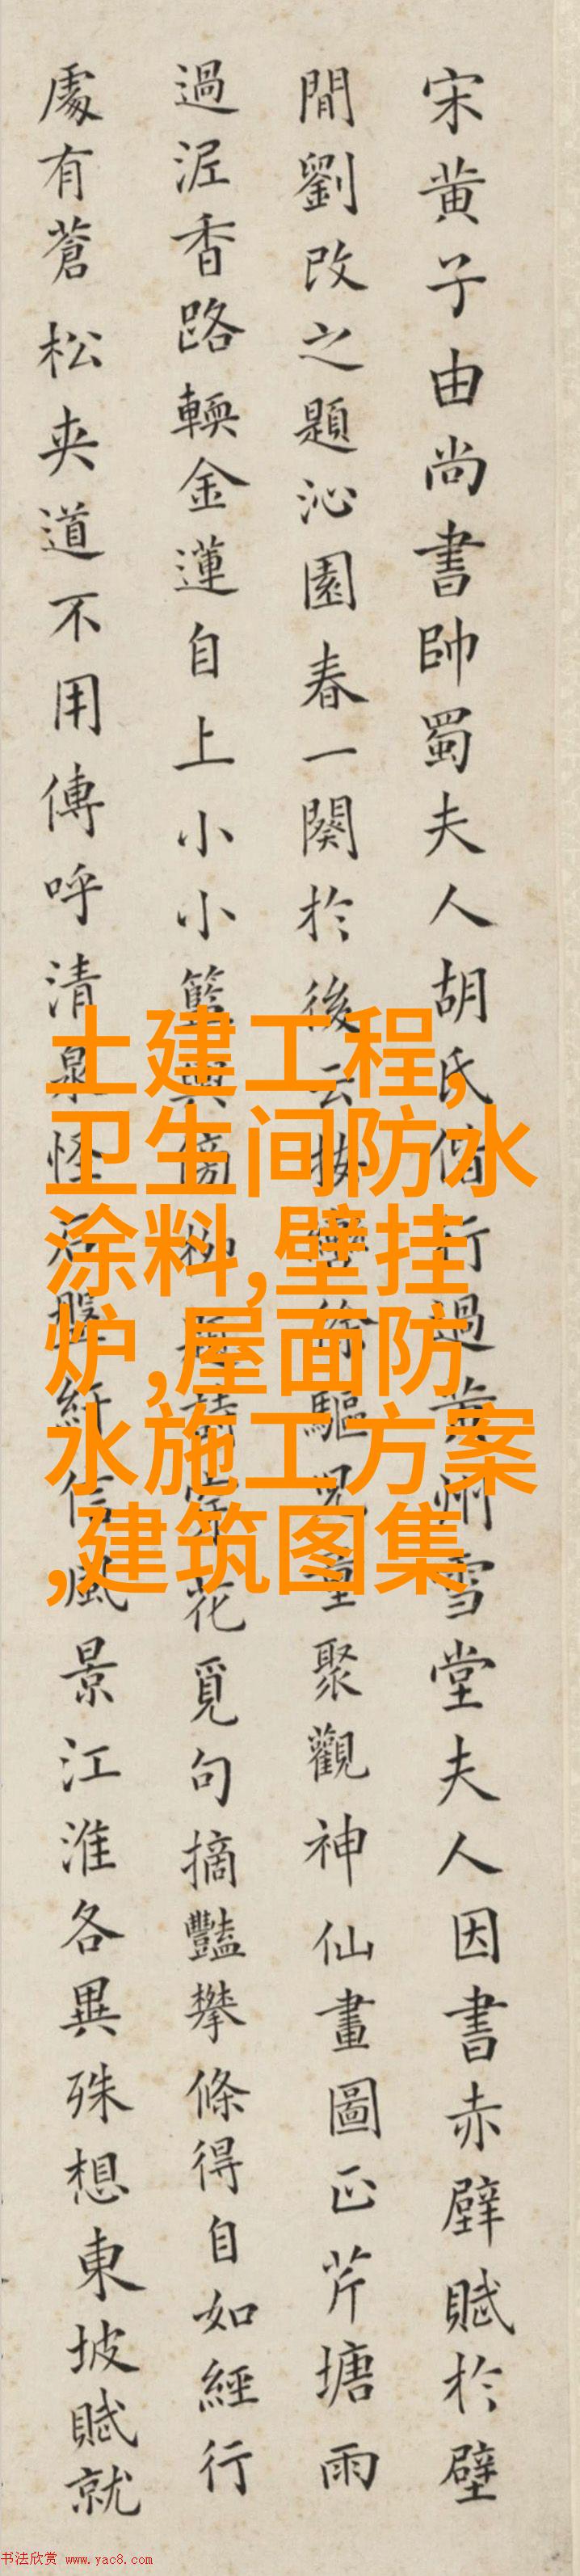 宋黄子由尚書帥蜀夫人胡氏偕行過黄州雪堂夫人因書赤壁賦於壁
間劉改之題沁園春一闋於後云按轡徐驅兒童聚觀神仙畫圖正芹塘雨
過泥香路輭金蓮自上小小籃輿傍柳題詩穿花覓句摘豔攀條得自如經行
處有蒼松夾道不用傳呼清泉怪石盤紆信風景江淮各異殊想東坡賦就
土建工程,
卫生间防水
涂料,壁挂
炉,屋面防
水施工方案
,建筑图集
书法欣赏 www.yac8.com